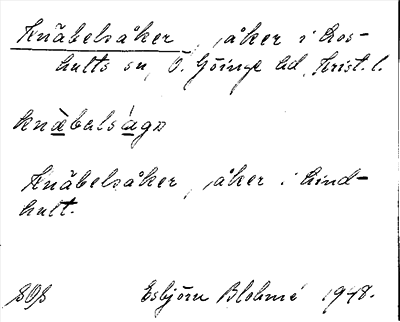 Knäbelsåker, åker i Los-
hults sn, Ö. Göinge hd, Krist. l.
knæ̀balság
Knäbelsåker, åker i Lind-
hult.
Esbjörn Blohmé 1948.